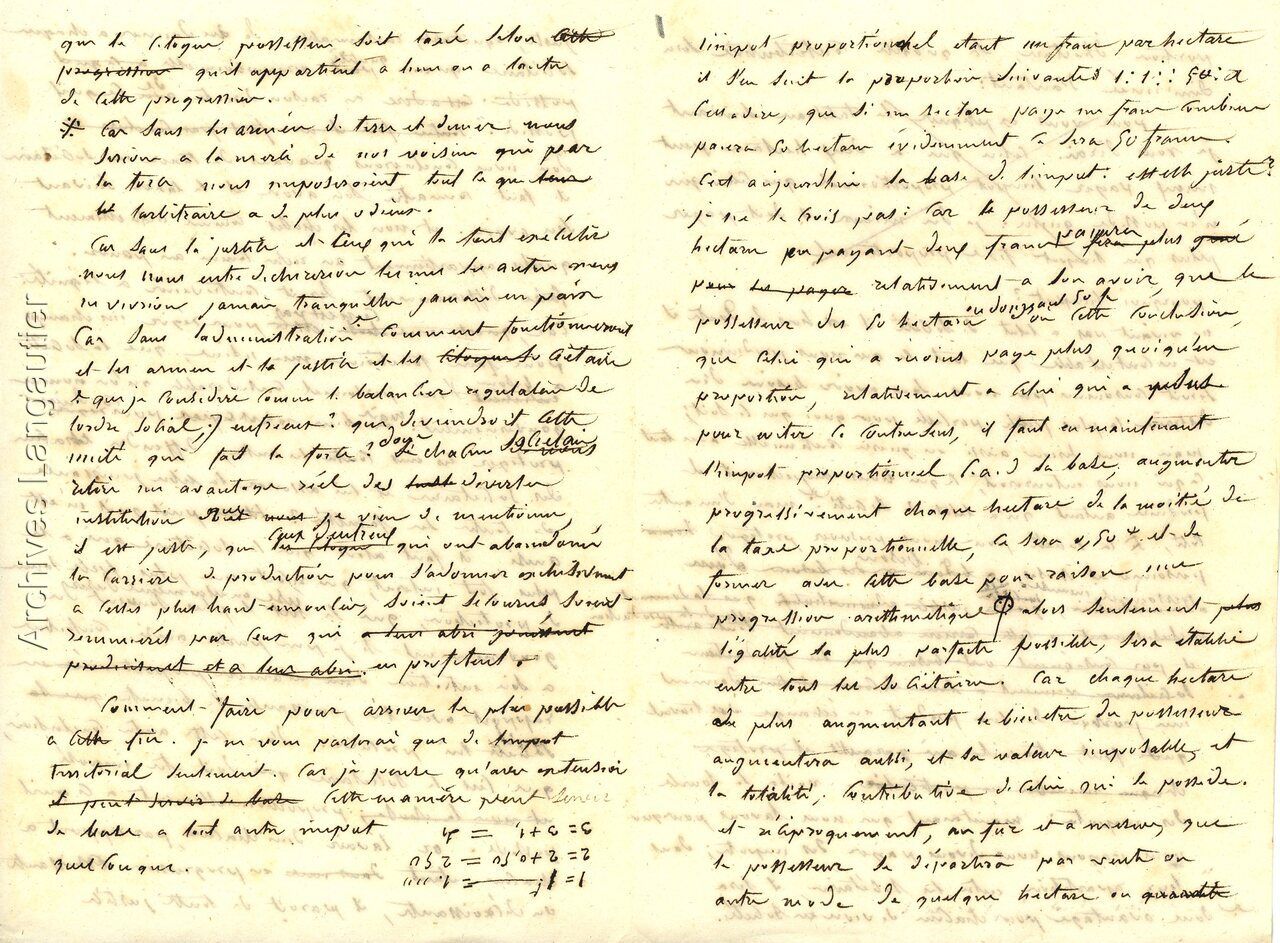 que le citoyen possesseur soit taxé selon cette
progression qu'il appartient a l'une ou a l'autre
de cette progression.
car sans les armées de terre et de mer nous
serions a la merci de nos voisins qui par
la force nous imposeroient tout ce que leur
l'arbitraire a de plus odieux.
Car sans la justice et ceux qui la font exécuter
nous nous entre déchirerions les uns les autres nous
ne vivrions jamais tranquilles jamais en paix
Car sans l'administration comment fonctionneroient
et les armées et la justice et les citoyens Sociétaires
que je considère comme le balancier regulateur de
l'ordre social, enfreins? que deviendroit cette
unité qui fait la force? donc si chacun sociétaire nous
retire un avantage réel des tout diverses
institutions que nous je viens de mentionner,
il est juste, que les citoyens ceux d'entreux qui ont abandonné
la carrière de production pour s'adonner exclusivement
a celles plus haut enoncées, soient secourus soient
remunérés par ceux qui a leur abri jouissent
produisent et a leur abri en profitent.
Comment faire pour arriver le plus possible
a cette fin. je ne vous parlerai que de l'impot
territorial seulement. Car je pense qu'avec extension
et peut servir de base cette manière peut servir
de base a tout autre impot
quelconque.
3 = 3+1, =
2 = 2+0,50 = 2,50
1 = 1
l'impot proportionnel etant un franc par hectare
il s'en suit la proportion suivante 1:1::50:x
C'est a dire, que si un hectare paye un franc combien
paiera 50 hectares évidemment ce sera 50 francs.
C'est aujourdhui la base de l'impot: est elle juste?
je ne le crois pas: car le possesseur de deux
hectares en payant deux francs payera sera plus
relativement a son avoir, que le
possesseur des 50 hectares en donnant 50 f. On cette conclusion,
que celui qui a moins paye plus, quoiqu'en
proportion, relativement a celui qui a plus.
pour eviter ce contresens, il faut en maintenant
l'impot proportionnel c.a.d sa base, augmenter
progressivement chaque hectare de la moitié de
la taxe proportionnelle, ce sera 0,50 et de
former avec cette base pour raison une
progression arithmetique alors seulement plus
l'égalité la plus parfaite possible, sera établie
entre tous les Sociétaires. Car chaque hectare
de plus augmentant le bienetre du possesseur
augmentera aussi, et sa valeur imposable, et
la totalité, contributive de celui qui le possède.
et réciproquement, au fur et a mesure, que
le possesseur se départira par vente ou
autre mode de quelque hectare ou quantité
Archives Langautier